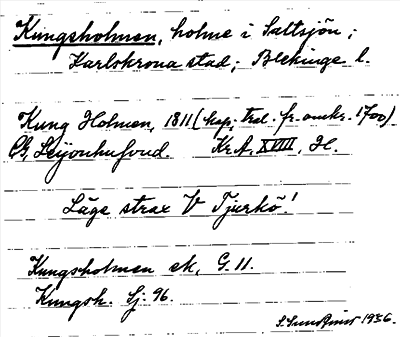 Kungsholmen, holme i Saltsjön;
Karlskrona stad; Blekinge l.
Kung Holmen, 1811 (kop; trol. fr. omkr. 1700)
CG, Leijonhufvud. Kr. A, XVIII, H.
Läge strax V Tjurkö!
Kungsholmen ek, G. 11.
Kungsh. Sj. 96.
1936.